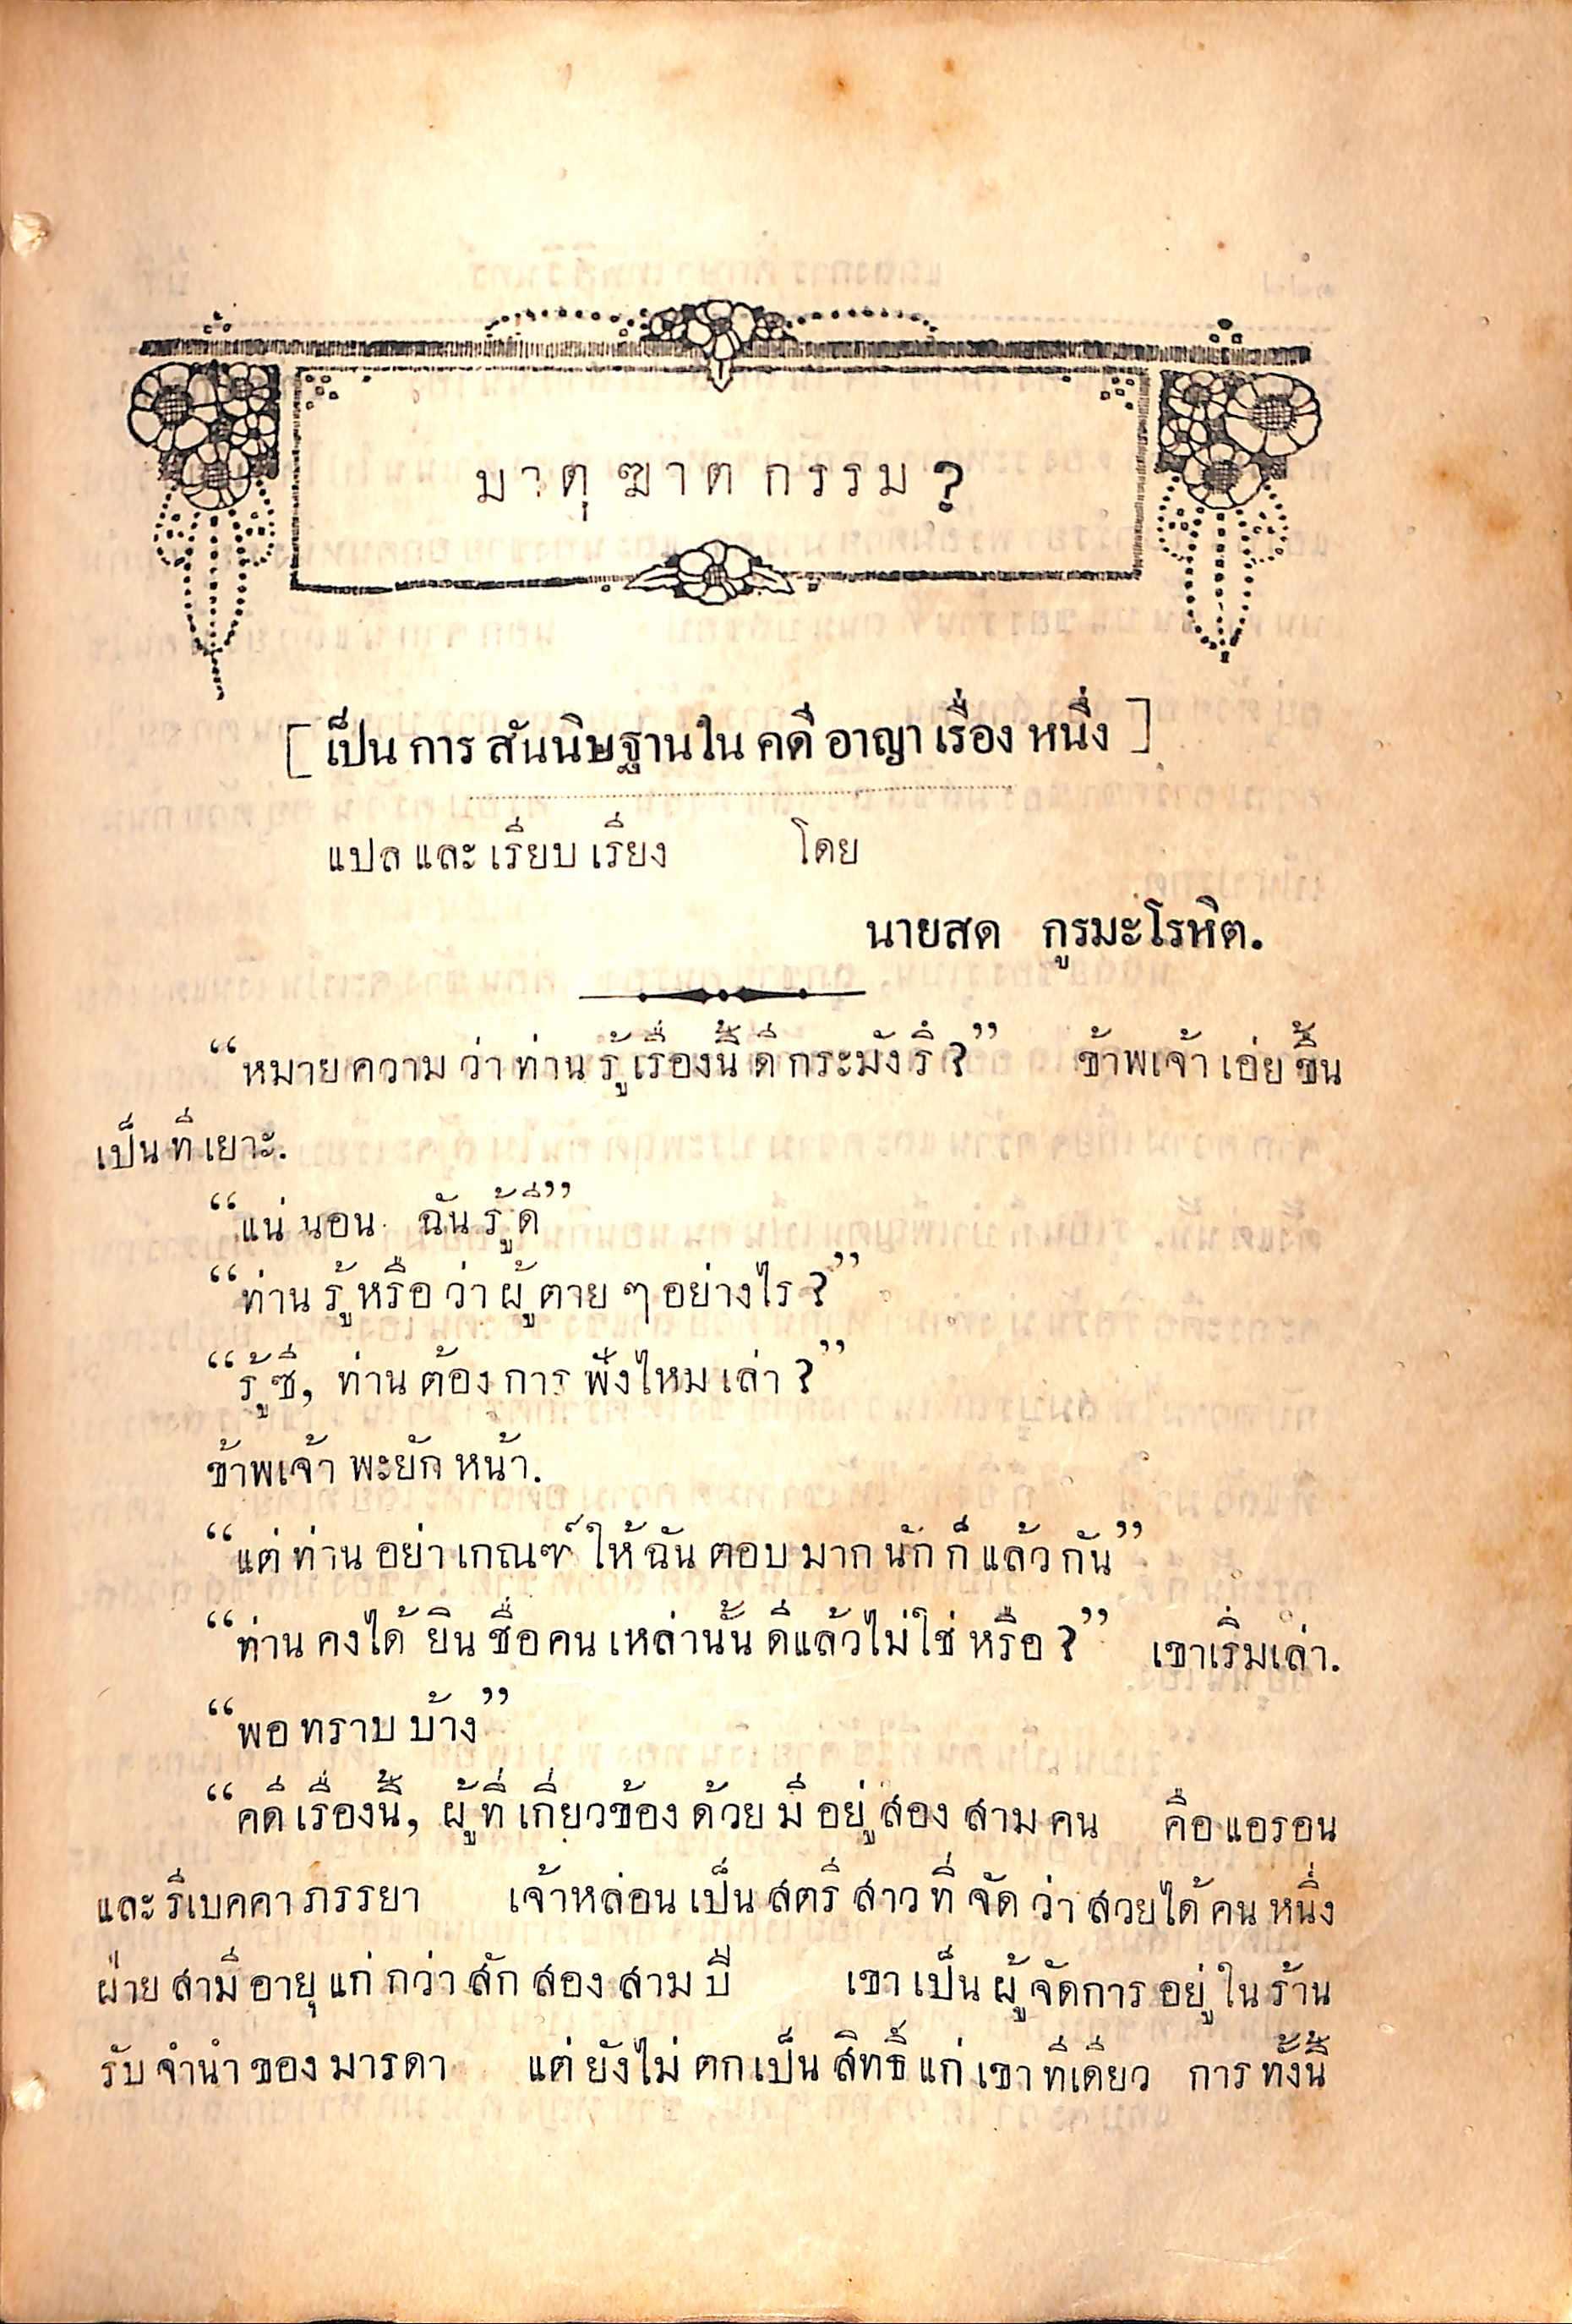 มาตุฆาตกรรม?
[เป็นการสันนิษฐานในคดีอาญาเรื่องหนึ่ง]
แปลและเรียบเรียง โดย
นายสด กูรมะโรหิต.
“หมายความว่าท่านรู้เรื่องนี้ดีกระมังรึ?” ข้าพเจ้าเอ่ยขึ้น
เป็นทีเยาะ.
“แน่นอน ฉันรู้ดี”
“ท่านรู้หรือว่าผู้ตายๆอย่างไร?”
“รู้ซี, ท่านต้องการฟังไหมเล่า?”
ข้าพเจ้าพะยักหน้า.
“แต่ท่านอย่าเกณฑ์ให้ฉันตอบมากนักก็แล้วกัน”
“ท่านคงได้ยินชื่อคนเหล่านั้นดีแล้วไม่ใช่หรือ?” เขาเริ่มเล่า.
“พอทราบบ้าง”
“คดีเรื่องนี้, ผู้ที่เกี่ยวข้องด้วยมีอยู่สองสามคน คือแอรอน
และรีเบคคาภรรยา เจ้าหล่อนเป็นสตรีสาวที่จัดว่าสวยได้คนหนึ่ง
ฝ่ายสามีอายุแก่กว่าสักสองสามปี เขาเป็นผู้จัดการอยู่ในร้าน
รับจำนำของมารดา แต่ยังไม่ตกเป็นสิทธิ์แก่เขาทีเดียว การทั้งนี้